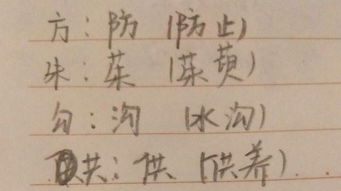 方：防（防止）
朱：茱（茱萸）
勾：沟（水沟）
共：供（供养）..